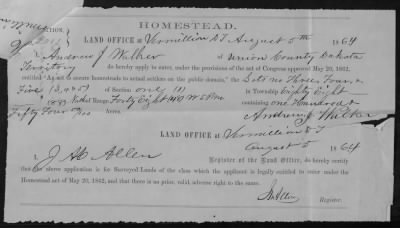 HOMESTEAD.
LAND OFFICE at Vermillion D T August 5th 1864
I, Andrew J Wilker of Union County Dakota
Territory do hereby apply to enter, under the provisions of the act of Congress approved May 20, 1862,
entitled "An act to secure homesteads to actual settlers on the public domain," the Lots no Three Four &
Five (3, 4 & 5) of Section one (1) in Township Eighty Eight
Range Forty Eight containing one Hundred &
Fifty Four Acres.
Andrew J Wilker
LAND OFFICE at Vermillion D T
August 5 1864
I, J H Allen Register of the Land Office, do hereby certify
that the above application is for Surveyed Lands of the class which the applicant is legally entitled to enter under the
Homestead act of May 20, 1862, and that there is no prior, valid, adverse right to the same.
Allen
Register.